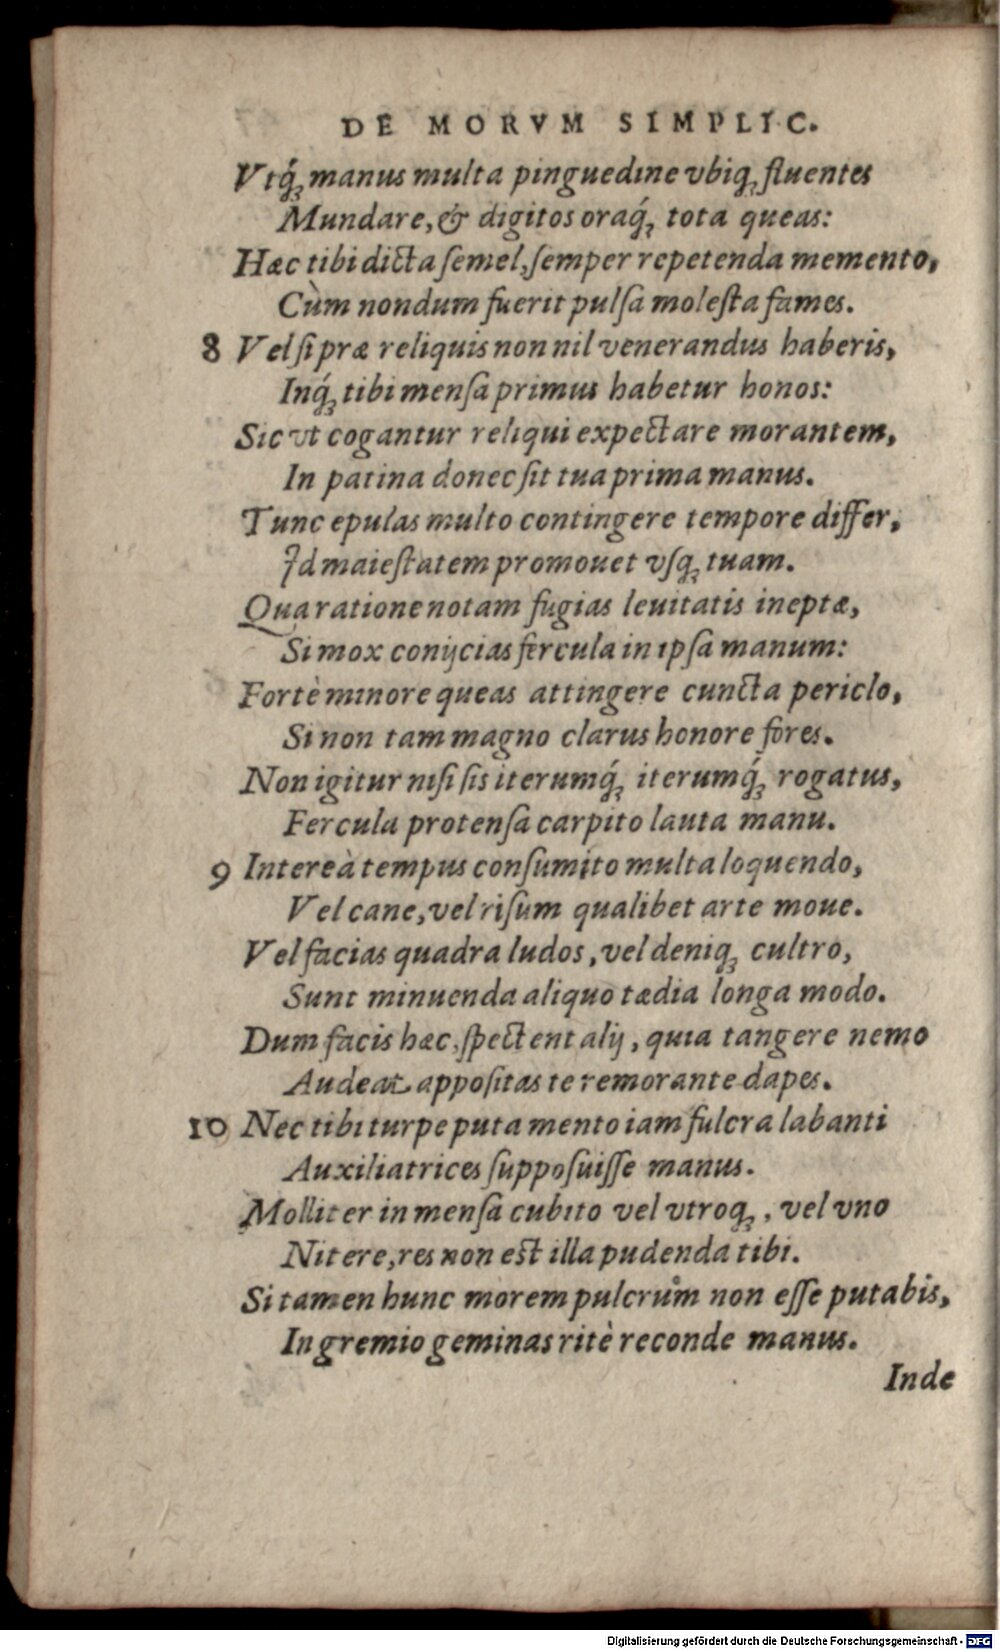 DE MORVM SIMPLIC.
Vtq́ꝫ manus multa pinguedine vbiqꝫ fluentes
Mundare, & digitos oraq́ꝫ tota queas:
Hæc tibi dicta ſemel, ſemper repetenda memento,
Cùm nondum fuerit pulſa moleſta fames.
8 Vel ſi præ reliquis non nil venerandus haberis,
Inq́ꝫ tibi menſa primus habetur honos:
Sic vt cogantur reliqui expectare morantem,
In patina donec ſit tua prima manus.
Tunc epulas multo contingere tempore differ,
Id maieſtatem promouet vſqꝫ tuam.
Qua ratione notam fugias leuitatis ineptæ,
Si mox conijcias fercula in ipſa manum:
Fortè minore queas attingere cuncta periclo,
Si non tam magno clarus honore fores.
Non igitur niſi ſis iterumq́ꝫ iterumq́ꝫ rogatus,
Fercula protenſa carpito lauta manu.
9 Intereà tempus conſumito multa loquendo,
Vel cane, vel riſum qualibet arte moue.
Vel facias quadra ludos, vel deniqꝫ cultro,
Sunt minuenda aliquo tædia longa modo.
Dum facis hæc, ſpectent alij, quia tangere nemo
Audeat appoſitas te remorante dapes.
10 Nec tibi turpe puta mento iam fulcra labanti
Auxiliatrices ſuppoſuiſſe manus.
Molliter in menſa cubito vel vtroqꝫ, vel vno
Nitere, res non eſt illa pudenda tibi.
Si tamen hunc morem pulcrům non eſſe putabis,
In gremio geminas ritè reconde manus.
Inde
Digitalisierung gefördert durch die Deutsche Forschungsgemeinschaft - DFG